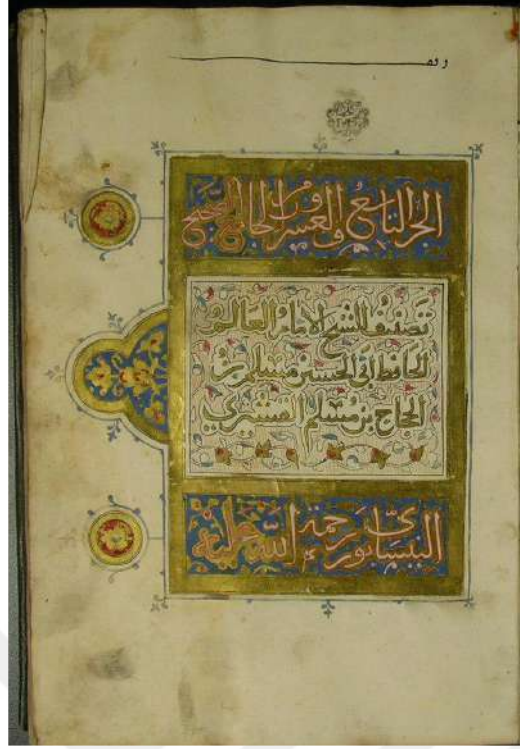 الجزء التاسع والعشرون من الجامع الصحيح
تصنيف الشيخ الامام العالم
الحافظ ابي الحسين مسلم بن
الحجاج بن مسلم القشيري
النيسابوري رحمة الله عليه